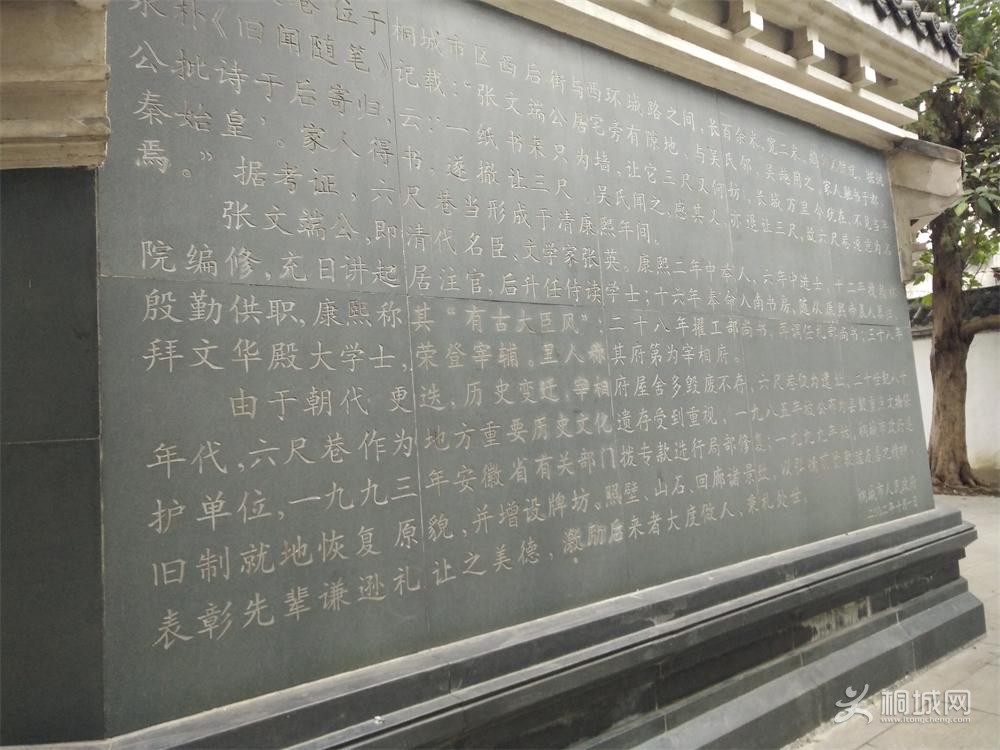 巷位于桐城市区西后街与西环城路之间，长百余米，宽二米，
朴《旧闻随笔》记载：“张文端公居宅旁有隙地，与吴氏邻，吴越用之。家人驰书于都，
公批诗于后寄归，云：‘一纸书来只为墙，让它三尺又何妨，长城万里今犹在，不见当年
秦始皇。’家人得书，遂撤让三尺，吴氏闻之，感其人，亦退让三尺，故六尺巷遂
焉。”据考证，六尺巷当形成于清康熙年间。
张文端公，即清代名臣、文学家张英。康熙二年中举人，六年中进士，十二年
院编修，充日讲起居注官，后升任侍读学士；十六年奉命入南书房，随从康熙
殷勤供职，康熙称其“有古大臣风”；二十八年擢工部尚书，再调任礼部尚书；三十八年
拜文华殿大学士，荣登宰辅。里人称其府第为宰相府。
由于朝代更迭，历史变迁，宰相府屋舍多毁废不存，六尺巷仅为遗址。二十世纪八十
年代，六尺巷作为地方重要历史文化遗存受到重视，一九八五年被公布为县级重点文物保
护单位，一九九三年安徽省有关部门拨专款进行局部修复；一九九九年
旧制就地恢复原貌，并增设牌坊、照壁、山石、回廊诸景
表彰先辈谦逊礼让之美德，激励后来者大度做人，秉礼处世。
桐城市人民政府
桐城网
www.itongcheng.com